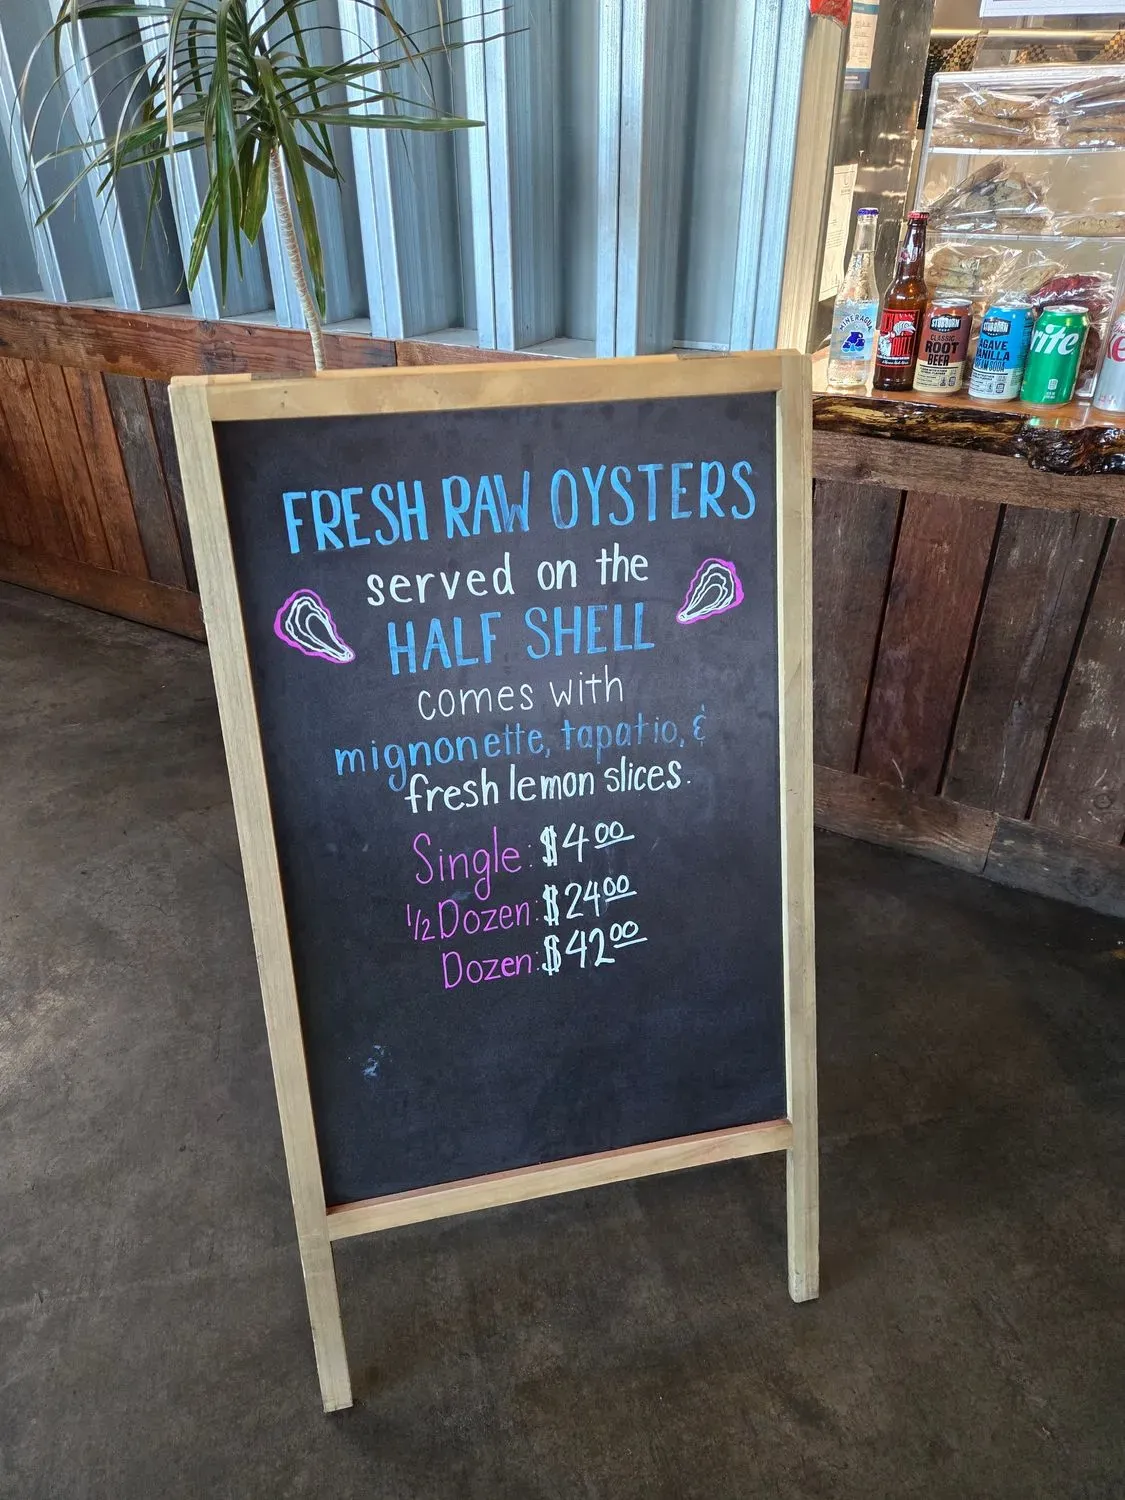 FRESH RAW OYSTERS
served on the
HALF SHELL
comes with
mignonette, tapatio, &
fresh lemon slices.
Single: $4.00
1/2 Dozen: $24.00
Dozen: $42.00
MINERAGUA
STUBBORN
CLASSIC
ROOT
BEER
STUBBORN
AGAVE
VANILLA
CREAM SODA
rite